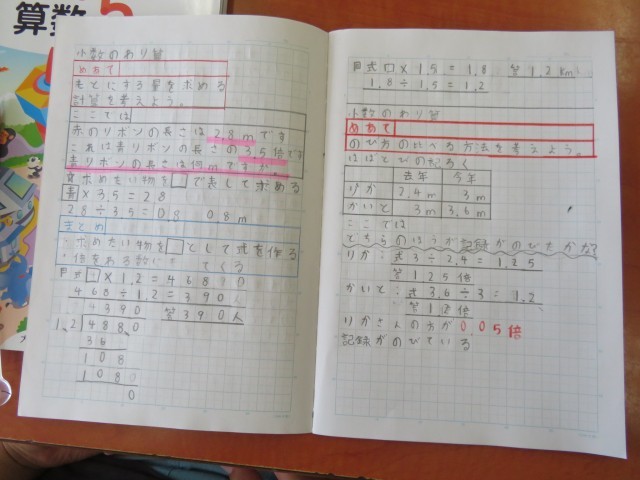 算数5
小数のわり算
めあて
もとにする量を求める
計算を考えよう。
ここでは
赤のリボンの長さは2.8mです
これは青リボンの長さの3.5倍です
青リボンの長さは何mですか。
求めたい物を□で表して求める
青×3.5=2.8
2.8÷3.5=0.8 0.8m
まとめ
・求めたい物を□として式を作る
てくる
□×1.2=468
468÷1.2=390人
390 答390人
1.2 4680
36
108
108
0
□×1.5=1.8 答1.2km
1.8÷1.5=1.2
小数のわり算
めあて
のび方の比べる方法を考えよう。
はばとびのきろく
去年 今年
りか 2.4m 3m
かいと 3m 3.6m
ここでは
どちらのほうが記録がのびたかな?
りか:式3÷2.4=1.25
答1.25倍
かいと:式3.6÷3=1.2
答1.2倍
りかさんの方が0.05倍
記録がのびている